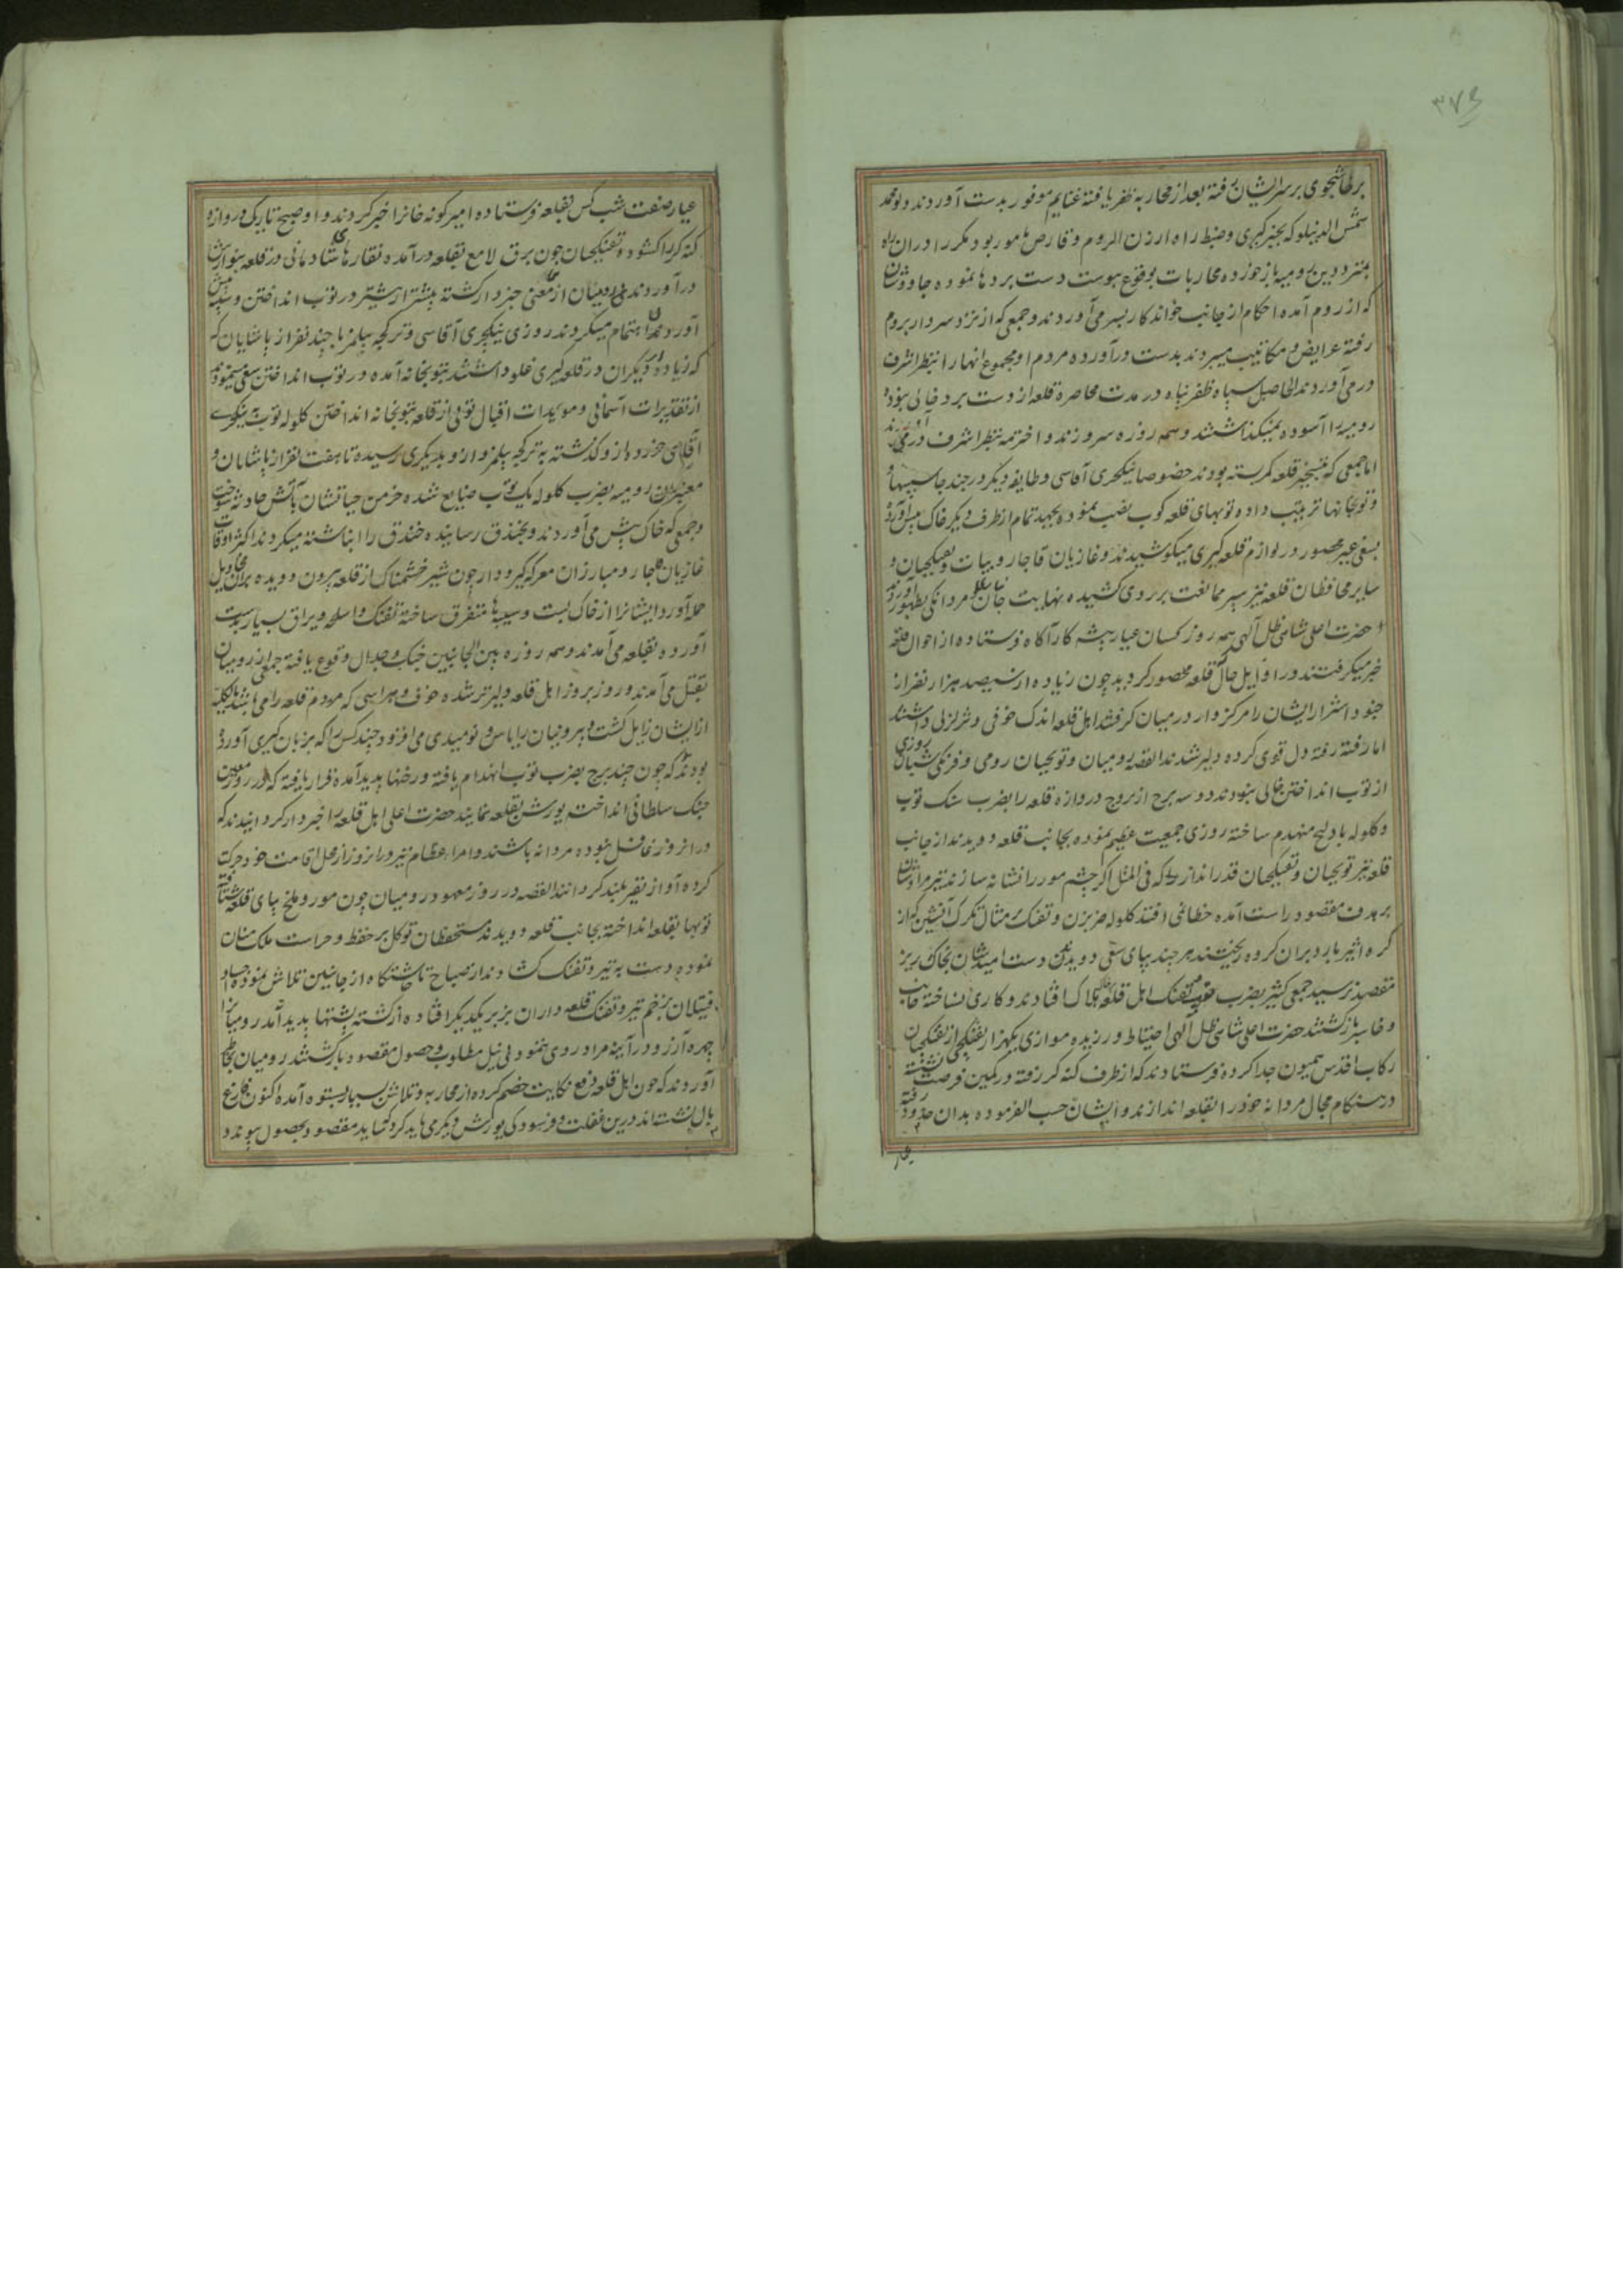 ۳۷۶
بر طاشجوی بر سر ایشان رفته بعد از محاربه ظفر یافته غنایم موفور بدست آوردند و نو محمد
شمس الدینلو که بخبر کیری و ضبط راه ارزن الروم و قارص مامور بود مکرر او در ان راه
بمترددین رومیه باز خورده محاربات بوقوع پیوست دست بردها نموده جاووشان
که از روم آمده احکام از جانب خواندکار بسر می آوردند و جمعی که از نزد سردار بروم
رفته عرایض و مکاتیب میبردند بدست در آورده مردم او مجموع انها را بنظر اشرف
در می آوردند الحاصل سپاه ظفر پناه در مدت محاصره قلعه از دست برد خالی نبوده
رومیه را آسوده نمیکذاشتند و همه روزه سر و زنده و اخترمه بنظر اشرف در می آوردند
اما جمعی که بتسخیر قلعه کمر بسته بودند خصوصا نیکجری آقاسی و طایفه دیکر در چند جا سیبها و
و توبخانها ترتیب داده توبهای قلعه کوب نصب نموده بجهد تمام از طرف دیکر خاک پیش آورده
بسعی غیر محصور در لوازم قلعه کیری میکوشیدند و غازیان قاجار و بیات و تفنکچیان و
سایر محافظان قلعه نیز سپر ممانعت بر روی کشیده نهایت جانسپاری و مردانکی بظهور آوردند
حضرت اعلی شاهی ظل آلهی همه روز کسان عیار پیشه کار آکاه فرستاده از احوال قلعه
خبر میکرفتند در اوایل حال که قلعه محصور کردید چون زیاده از سیصد هزار نفر از
جنود اشرار ایشان را مرکز وار در میان کرفتند اهل قلعه اندک خوفی و تزلزلی داشتند
اما رفته رفته دل قوی کرده دلیر شدند القصه رومیان و توبچیان رومی و فرنکی شبان روزی
از توب انداختن خالی نبودند دو سه برج از بروج دروازه قلعه را بضرب سنک توب
و کلوله بادلیج منهدم ساخته روزی جمعیت عظیم نموده بجانب قلعه دویدند از جانب
قلعه نیز توبچیان و تفنکچیان قدر انداز که فی المثل اکر چشم مور را نشانه سازند تیر مرادشان
بر هدف مقصود راست آمده خطا نمی افتد کلوله ضربزن و تفنک بر مثال تکرک آتشین که از
کره اثیر بارد بران کروه ریختند هر چند بپای سعی دویدند دست امیدشان بخاک ریز
مقصد نرسید جمعی کثیر بضرب توب و تفنک اهل قلعه بخاک هلاک افتادند و کاری نساخته خایب
و خاسر باز کشتند حضرت اعلی شاهی ظل آلهی احتیاط ورزیده موازی یکهزار تفنکچی از تفنکچیان
رکاب اقدس همیون جدا کرده فرستادند که از طرف کنه کر رفته در کمین فرصت نشسته
در هنکام مجال مردانه خود را بقلعه اندازند و ایشان حسب الفرموده بدان حدود رفته
عیار
عیار صنعت شب کس بقلعه فرستاده امیر کونه خانرا خبر کردند و او صبح تاریکی دروازه
کنه کر را کشوده تفنکچیان چون برق لامع بقلعه در آمده نقارهای شادمانی در قلعه بنوازش
در آوردند رومیان ازین معنی خبردار کشته بیشتر از پیشتر در توب انداختن و سیبه پیش
آوردن اهتمام میکردند روزی نیکجری آقاسی و ترکجه بیلمز با چند نفر از پاشایان که
که زیاده از دیکران در قلعه کیری غلو داشتند بتوبخانه آمده در توب انداختن سعی مینمودند
از تقدیرات آسمانی و مویدات اقبال توبی از قلعه بتوبخانه انداختن کلوله توب به نیکجری
آقاسی خورد و از و کذشته به ترکجه بیلمز و از و بدیکری رسیده تا هفت نفر از پاشایان و
معتبران رومیه بضرب کلوله یک توب ضایع شده خرمن حیاتشان باتش حادثه سوخت
و جمعی که خاک پیش می آوردند و بخندق رسانیده خندق را انباشته میکردند اکثر اوقات
غازیان قاجار و مبارزان معرکه کیر و دار چون شیر خشمناک از قلعه بیرون دویده بران خیل
حمله آورده ایشانرا از خاک بست و سیبه ها متفرق ساخته تفنک و اسلحه و یراق بسیار بدست
آورده بقلعه می آمدند و همه روزه بین الجانبین جنک و جدال وقوع یافته جمعی از رومیان
بقتل می آمدند و روز بروز اهل قلعه دلیرتر شده خوف و هراسی که مردم قلعه را می باشد بالکلیه
از ایشان زایل کشت و بیرونیان را یاس و نومیدی می افزود چند کس را که بزبان کیری آورده
بودند که چون چند برج بضرب توب انهدام یافته و رخنها پدید آمده قرار یافته که در روز معین
جنک سلطانی انداخته یورش بقلعه نمایند حضرت اعلی اهل قلعه را خبردار کردانیدند که
در انروز غافل نبوده مردانه باشند و امراء عظام نیز در انروز از محل اقامت خود حرکت
کرده آواز نفیر بلند کردانند القصه در روز معهود رومیان چون مور و ملخ بپای قلعه شتافته
توبها بقلعه انداخته بجانب قلعه دویدند مستحفظان توکل بر حفظ و حراست ملک منان
نموده دست به تیر و تفنک کشادند از صباح تا چاشتکاه از جانبین تلاش نموده اجساد
قتیلان بزخم تیر و تفنک قلعه داران بزبر یکدیکر افتاده از کشته پشتها پدید آمد رومیانرا
چهره آرزو در آینه مراد روی ننمود بی نیل مطلوب و حصول مقصود باز کشتند رومیان بخاطر
آوردند که چون اهل قلعه دفع نکایت خصم کرده از محاربه و تلاش بسیار بستوه آمده اکنون فارغ
بال نشسته اند درین غفلت و فرسودکی یورش دیکری باید کرد شاید مقصود بحصول پیوندد